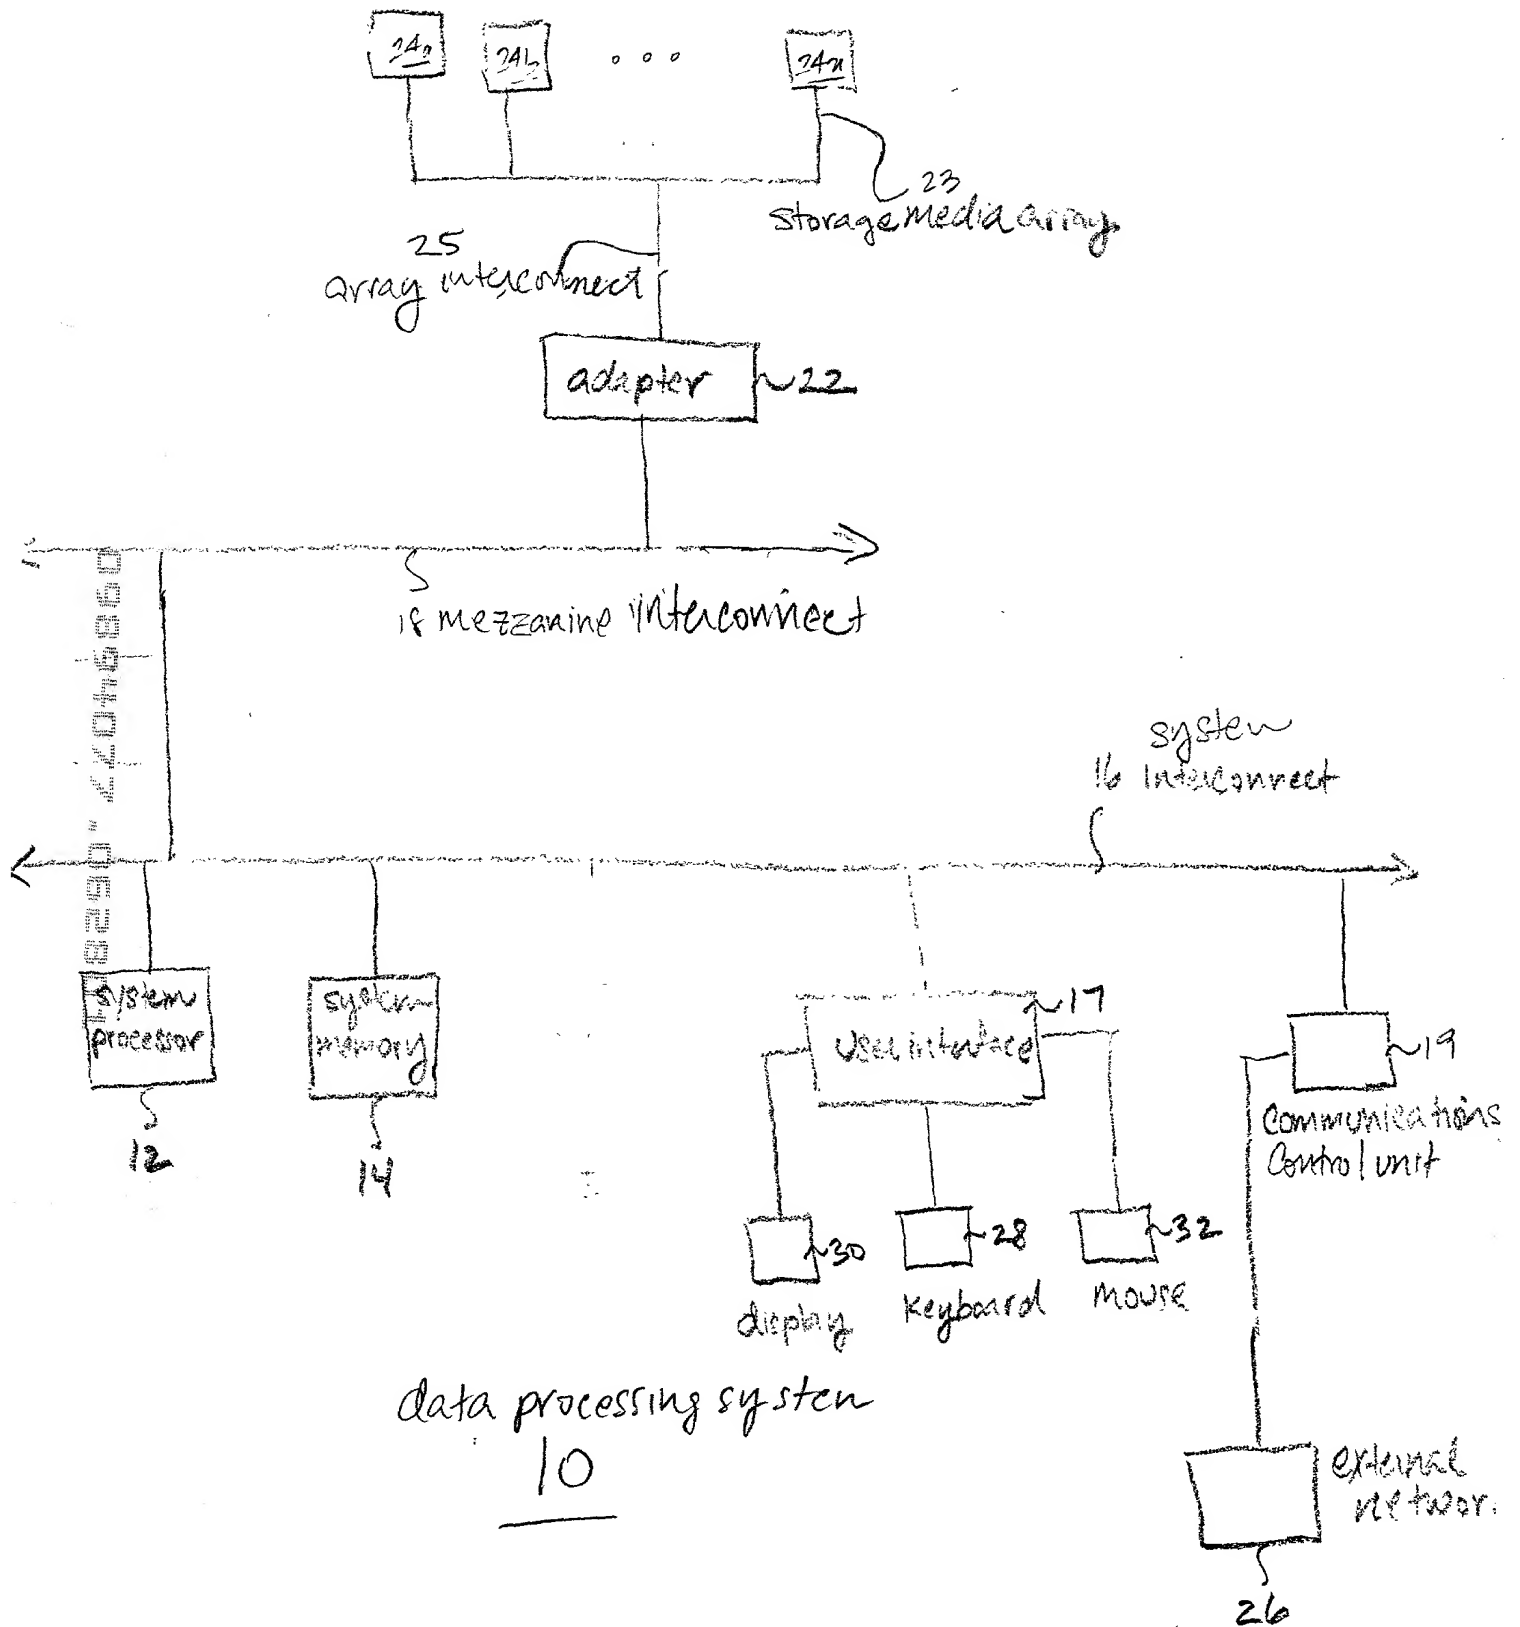 24a 24b 24n
23
storage media array
25
array interconnect
adapter 22
18 mezzanine interconnect
09894077.062801
system
16 interconnect
system
processor
12
system
memory
14
user interface 17
19
communications
control unit
30
display
28
keyboard
32
mouse
data processing system
10
external
networ
26